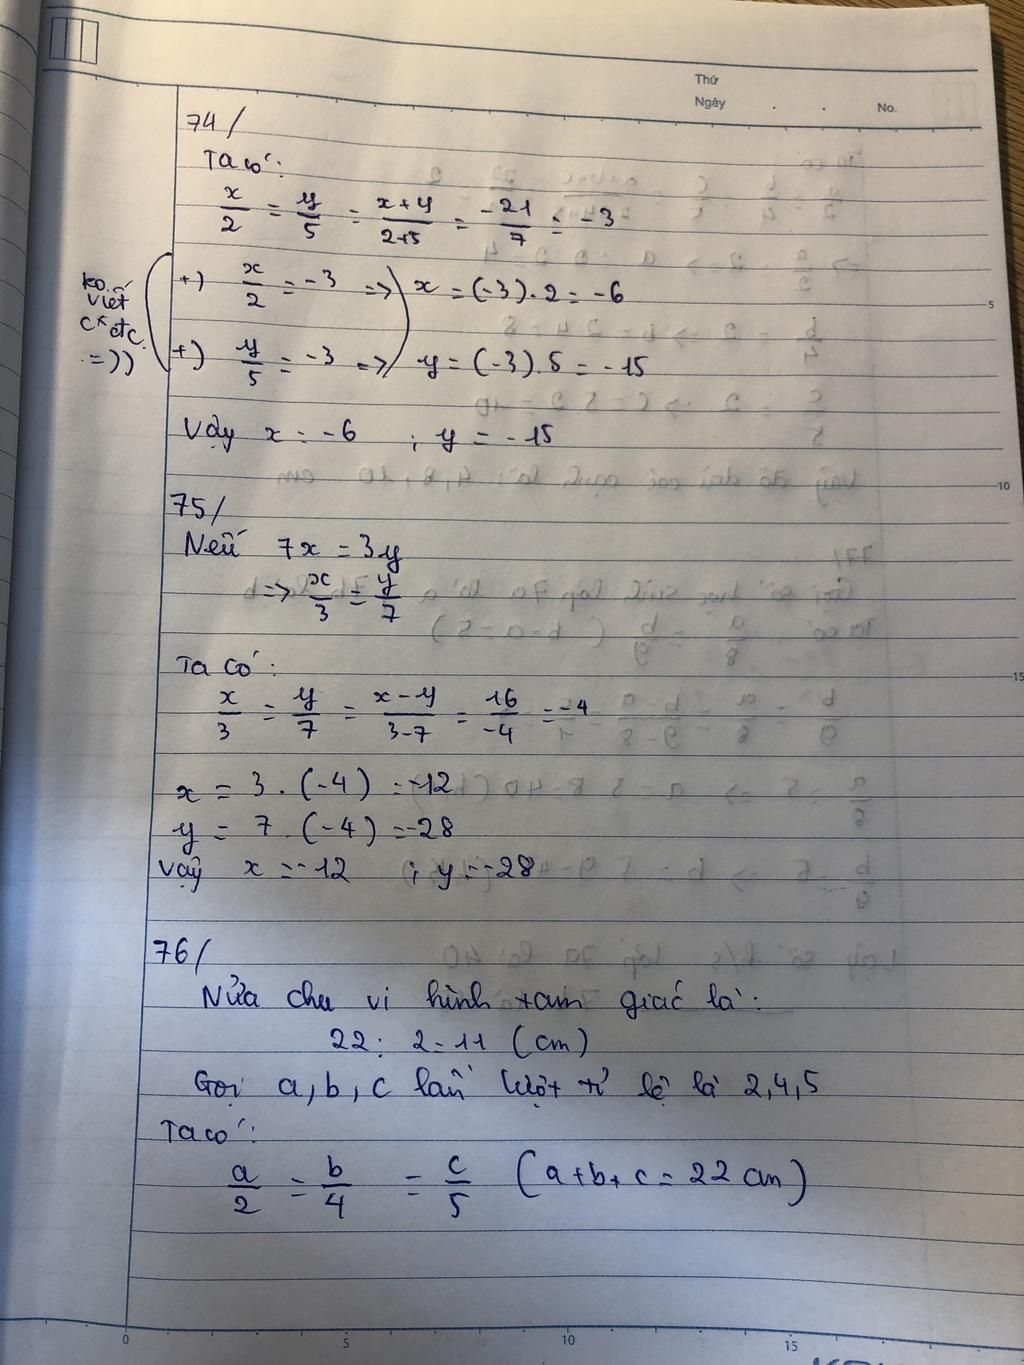 Thứ
Ngày . . No.
74/
Ta có:
x/2 = y/5 = x+y/2+5 = -21/7 = -3
+) x/2 = -3 => x = (-3).2 = -6
ko viết
+) y/5 = -3 => y = (-3).5 = -15
Vậy x = -6 ; y = -15
75/
Nếu 7x = 3y
=> x/3 = y/7
Ta có:
x/3 = y/7 = x-y/3-7 = 16/-4 = -4
x = 3.(-4) = -12
y = 7.(-4) = -28
Vậy x = -12 ; y = -28
76/
Nửa chu vi hình tam giác là:
22: 2 = 11 (cm)
Gọi a, b, c lần lượt tỉ lệ là 2,4,5
Ta có:
a/2 = b/4 = c/5 (a+b+c = 22 cm)
5
10
15
0 5 10 15